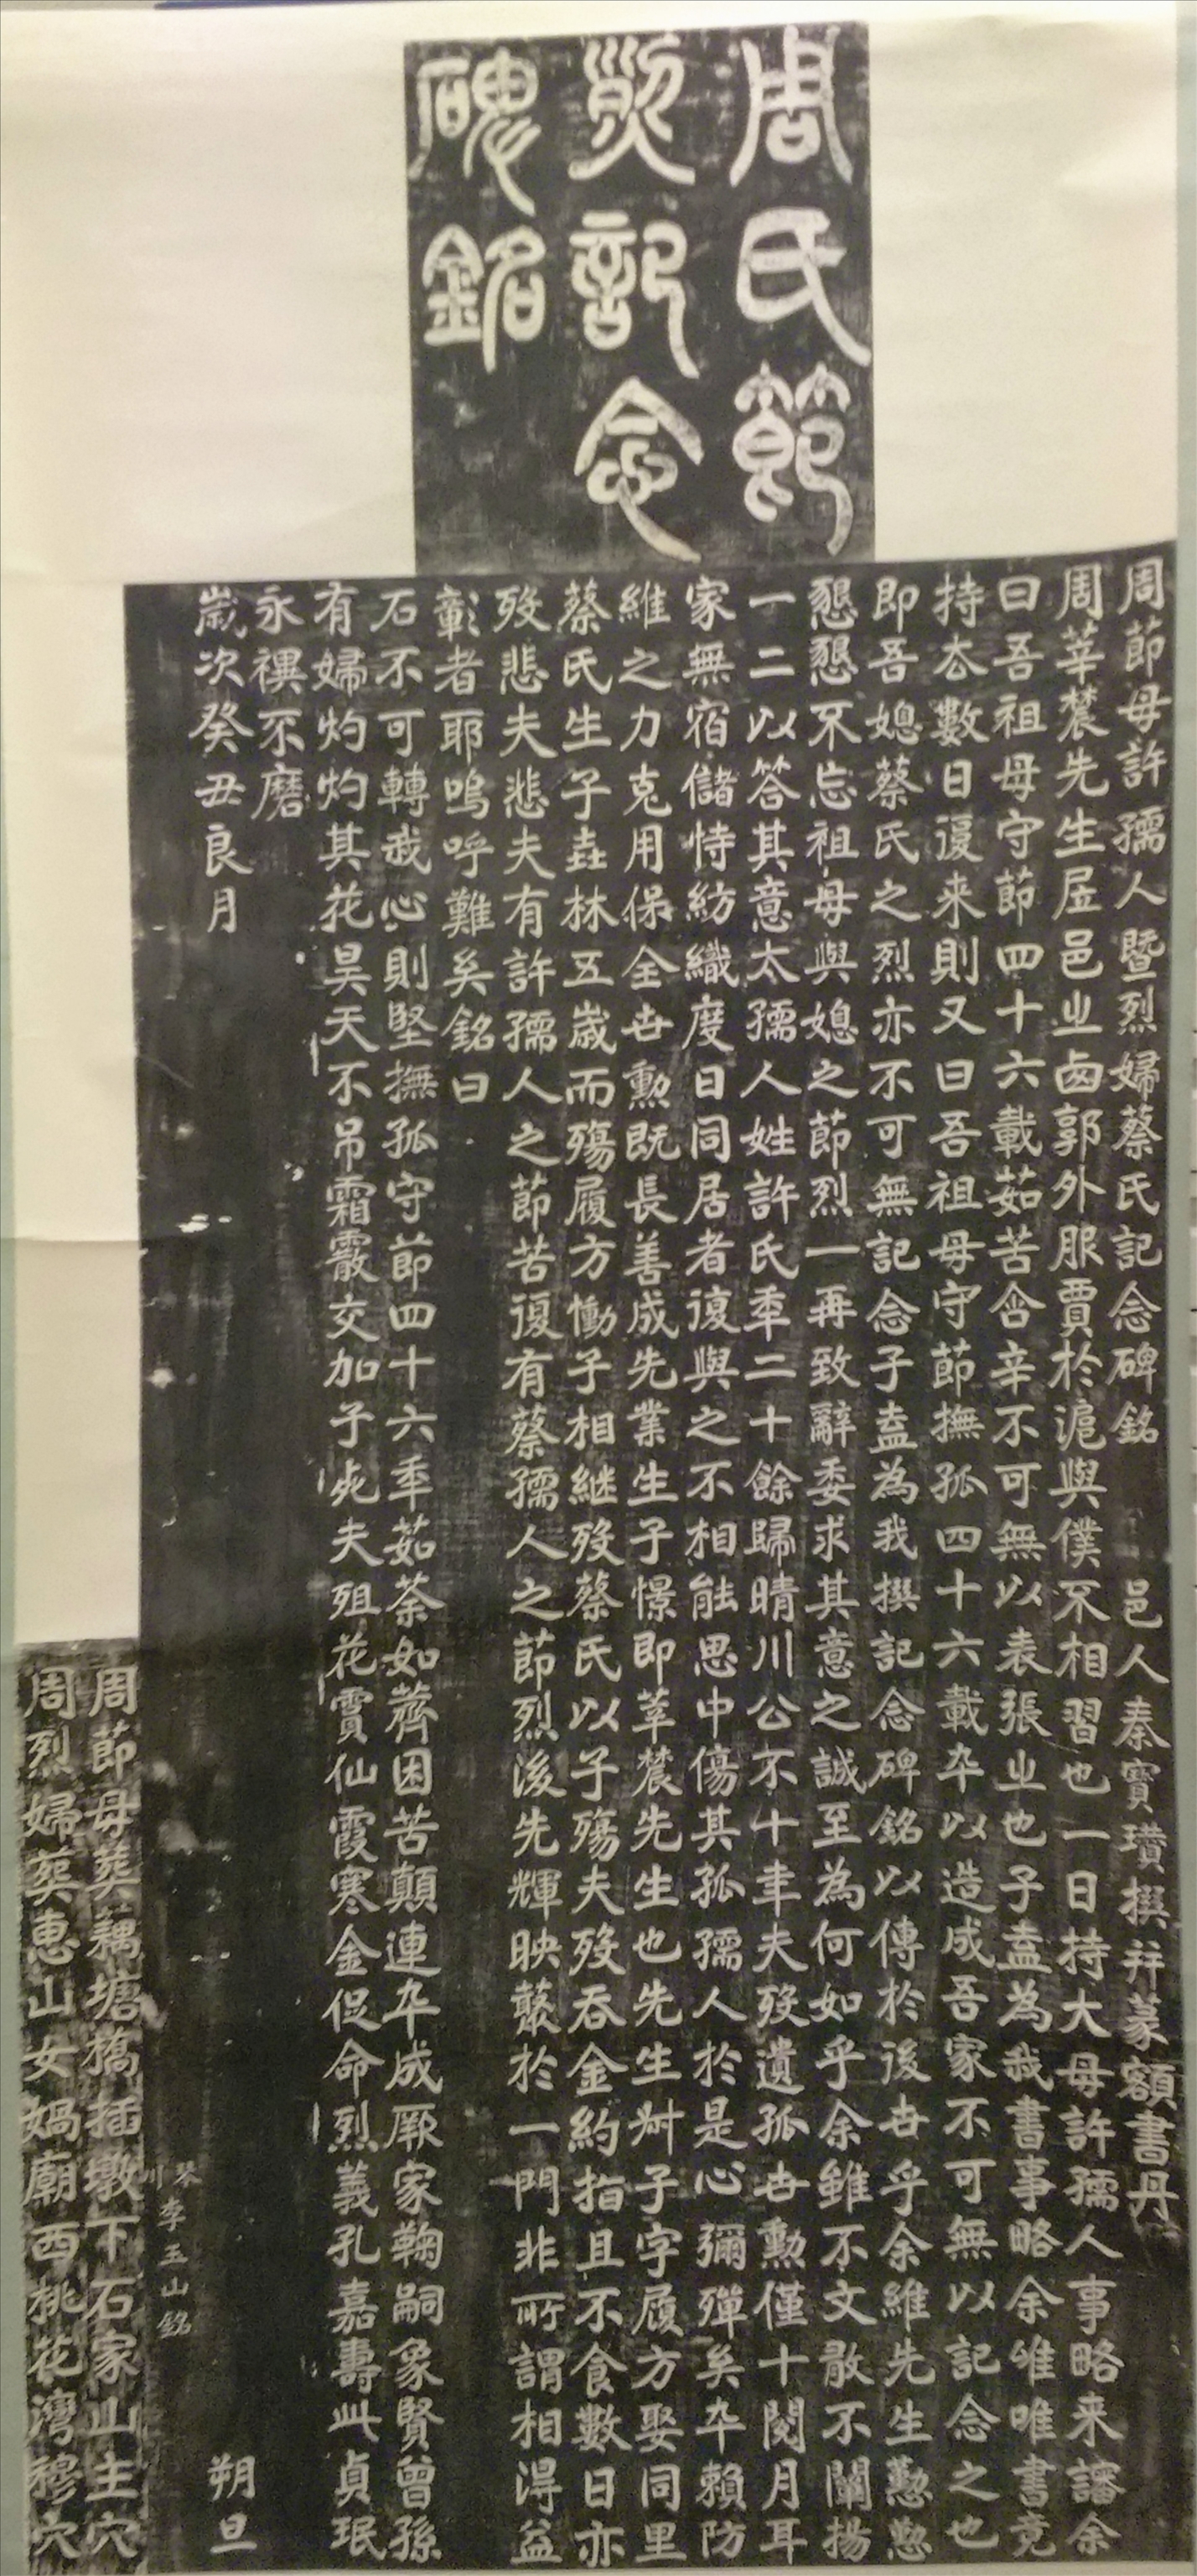 周氏節
烈記念
碑銘
周節母許孺人暨烈婦蔡氏記念碑銘 邑人秦寶瓚撰并篆額書丹
周莘農先生居邑㞢西郭外服賈於滬與僕不相習也一日持大母許孺人事略来諈余
曰吾祖母守節四十六載茹苦含辛不可無以表張㞢也子盍為我書事略余唯唯書竟
持去數日復来則又曰吾祖母守節撫孤四十六載卒以造成吾家不可無以記念之也
即吾媳蔡氏之烈亦不可無記念子盍為我撰記念碑銘以傳於後世乎余維先生懃懃
懇懇不忘祖母與媳之節烈一再致辭委求其意之誠至為何如乎余雖不文敢不闡揚
一二以答其意太孺人姓許氏年二十餘歸晴川公不十年夫歿遺孤世勳僅十閱月耳
家無宿儲恃紡織度日同居者復與之不相能思中傷其孤孺人於是心彌殫矣卒賴防
維之力克用保全世勳既長善成先業生子憬即莘農先生也先生㓜子字履方娶同里
蔡氏生子垚林五歲而殤履方慟子相継歿蔡氏以子殤夫歿吞金約指且不食數日亦
歿悲夫悲夫有許孺人之節苦復有蔡孺人之節烈後先輝映藂於一門非所謂相得益
彰者耶嗚呼難矣銘曰
石不可轉我心則堅撫孤守節四十六年茹荼如薺困苦顛連卒成厥家鞠嗣象賢曾孫
有婦灼灼其花昊天不吊霜霰交加子死夫殂花霣仙霞寒金促命烈義孔嘉壽此貞珉
永禩不磨
歲次癸丑良月 朔旦
琴川李玉山銘
周節母葬藕塘橋插墩下石家山主穴
周烈婦葬惠山女媧廟西桃花灣穆穴